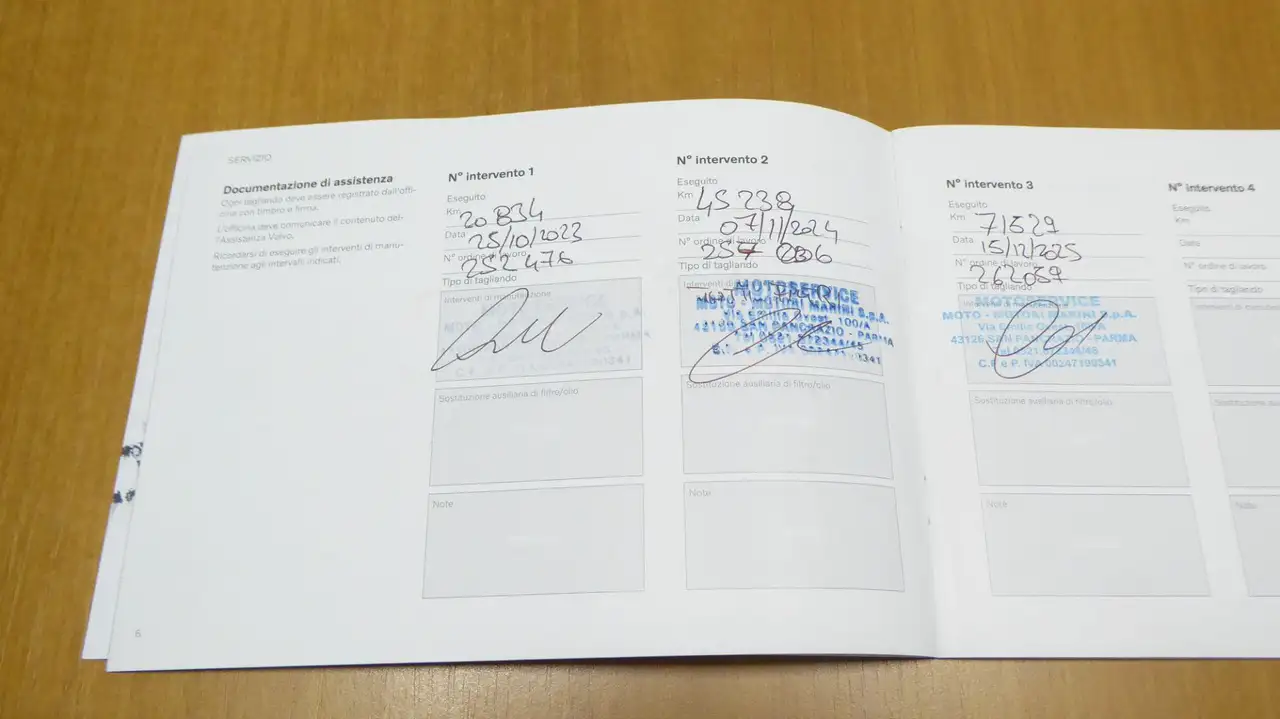 SERVIZIO
Documentazione di assistenza
Ogni tagliando deve essere registrato dall'offi-
cina con timbro e firma.
L'officina deve comunicare il contenuto del-
l'Assistenza Volvo.
Ricordarsi di eseguire gli interventi di manu-
tenzione agli intervalli indicati.
6
N° intervento 1
Eseguito
Km 20834
Data 25/10/2023
N° ordine di lavoro 252476
Tipo di tagliando
Interventi di manutenzione
Sostituzione ausiliaria di filtro/olio
Note
N° intervento 2
Eseguito
Km 45238
Data 07/11/2024
N° ordine di lavoro
Tipo di tagliando
Interventi di
MOTOSERVICE
MOTO - MOTORI MARINI S.p.A.
Via Emilia Ovest, 100/A
43126 SAN PANCRAZIO - PARMA
Tel 0521
Sostituzione ausiliaria di filtro/olio
Note
N° intervento 3
Eseguito
Km 71529
Data 15/12/2025
N° ordine di lavoro 262037
Tipo di tagliando
MOTOSERVICE
MOTO - MOTORI MARINI S.p.A.
Via Emilia Ovest
43126 SAN PANCRAZIO - PARMA
Tel 0521
C.F. e P. IVA
Sostituzione ausiliaria di filtro/olio
Note
N° intervento 4
Eseguito
Km
Data
N° ordine di lavoro
Tipo di tagliando
Interventi di
Sostituzione
Note